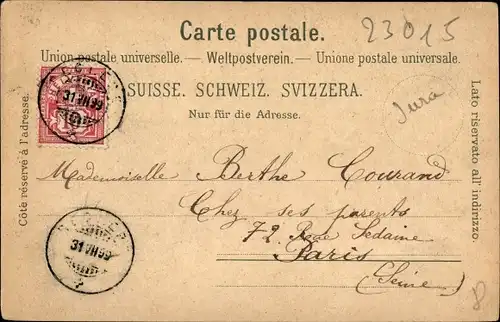 Carte postale.
23015
Union postale universelle. — Weltpostverein. — Unione postale universale.
SUISSE. SCHWEIZ. SVIZZERA.
Nur für die Adresse.
Jura
Côté réservé à l'adresse.
Lato riservato all' indirizzo.
31 VII 99
Mademoiselle Berthe Courand
Chez ses parents
72 Rue Sedaine
Paris
(Seine)
31 VII 99
8